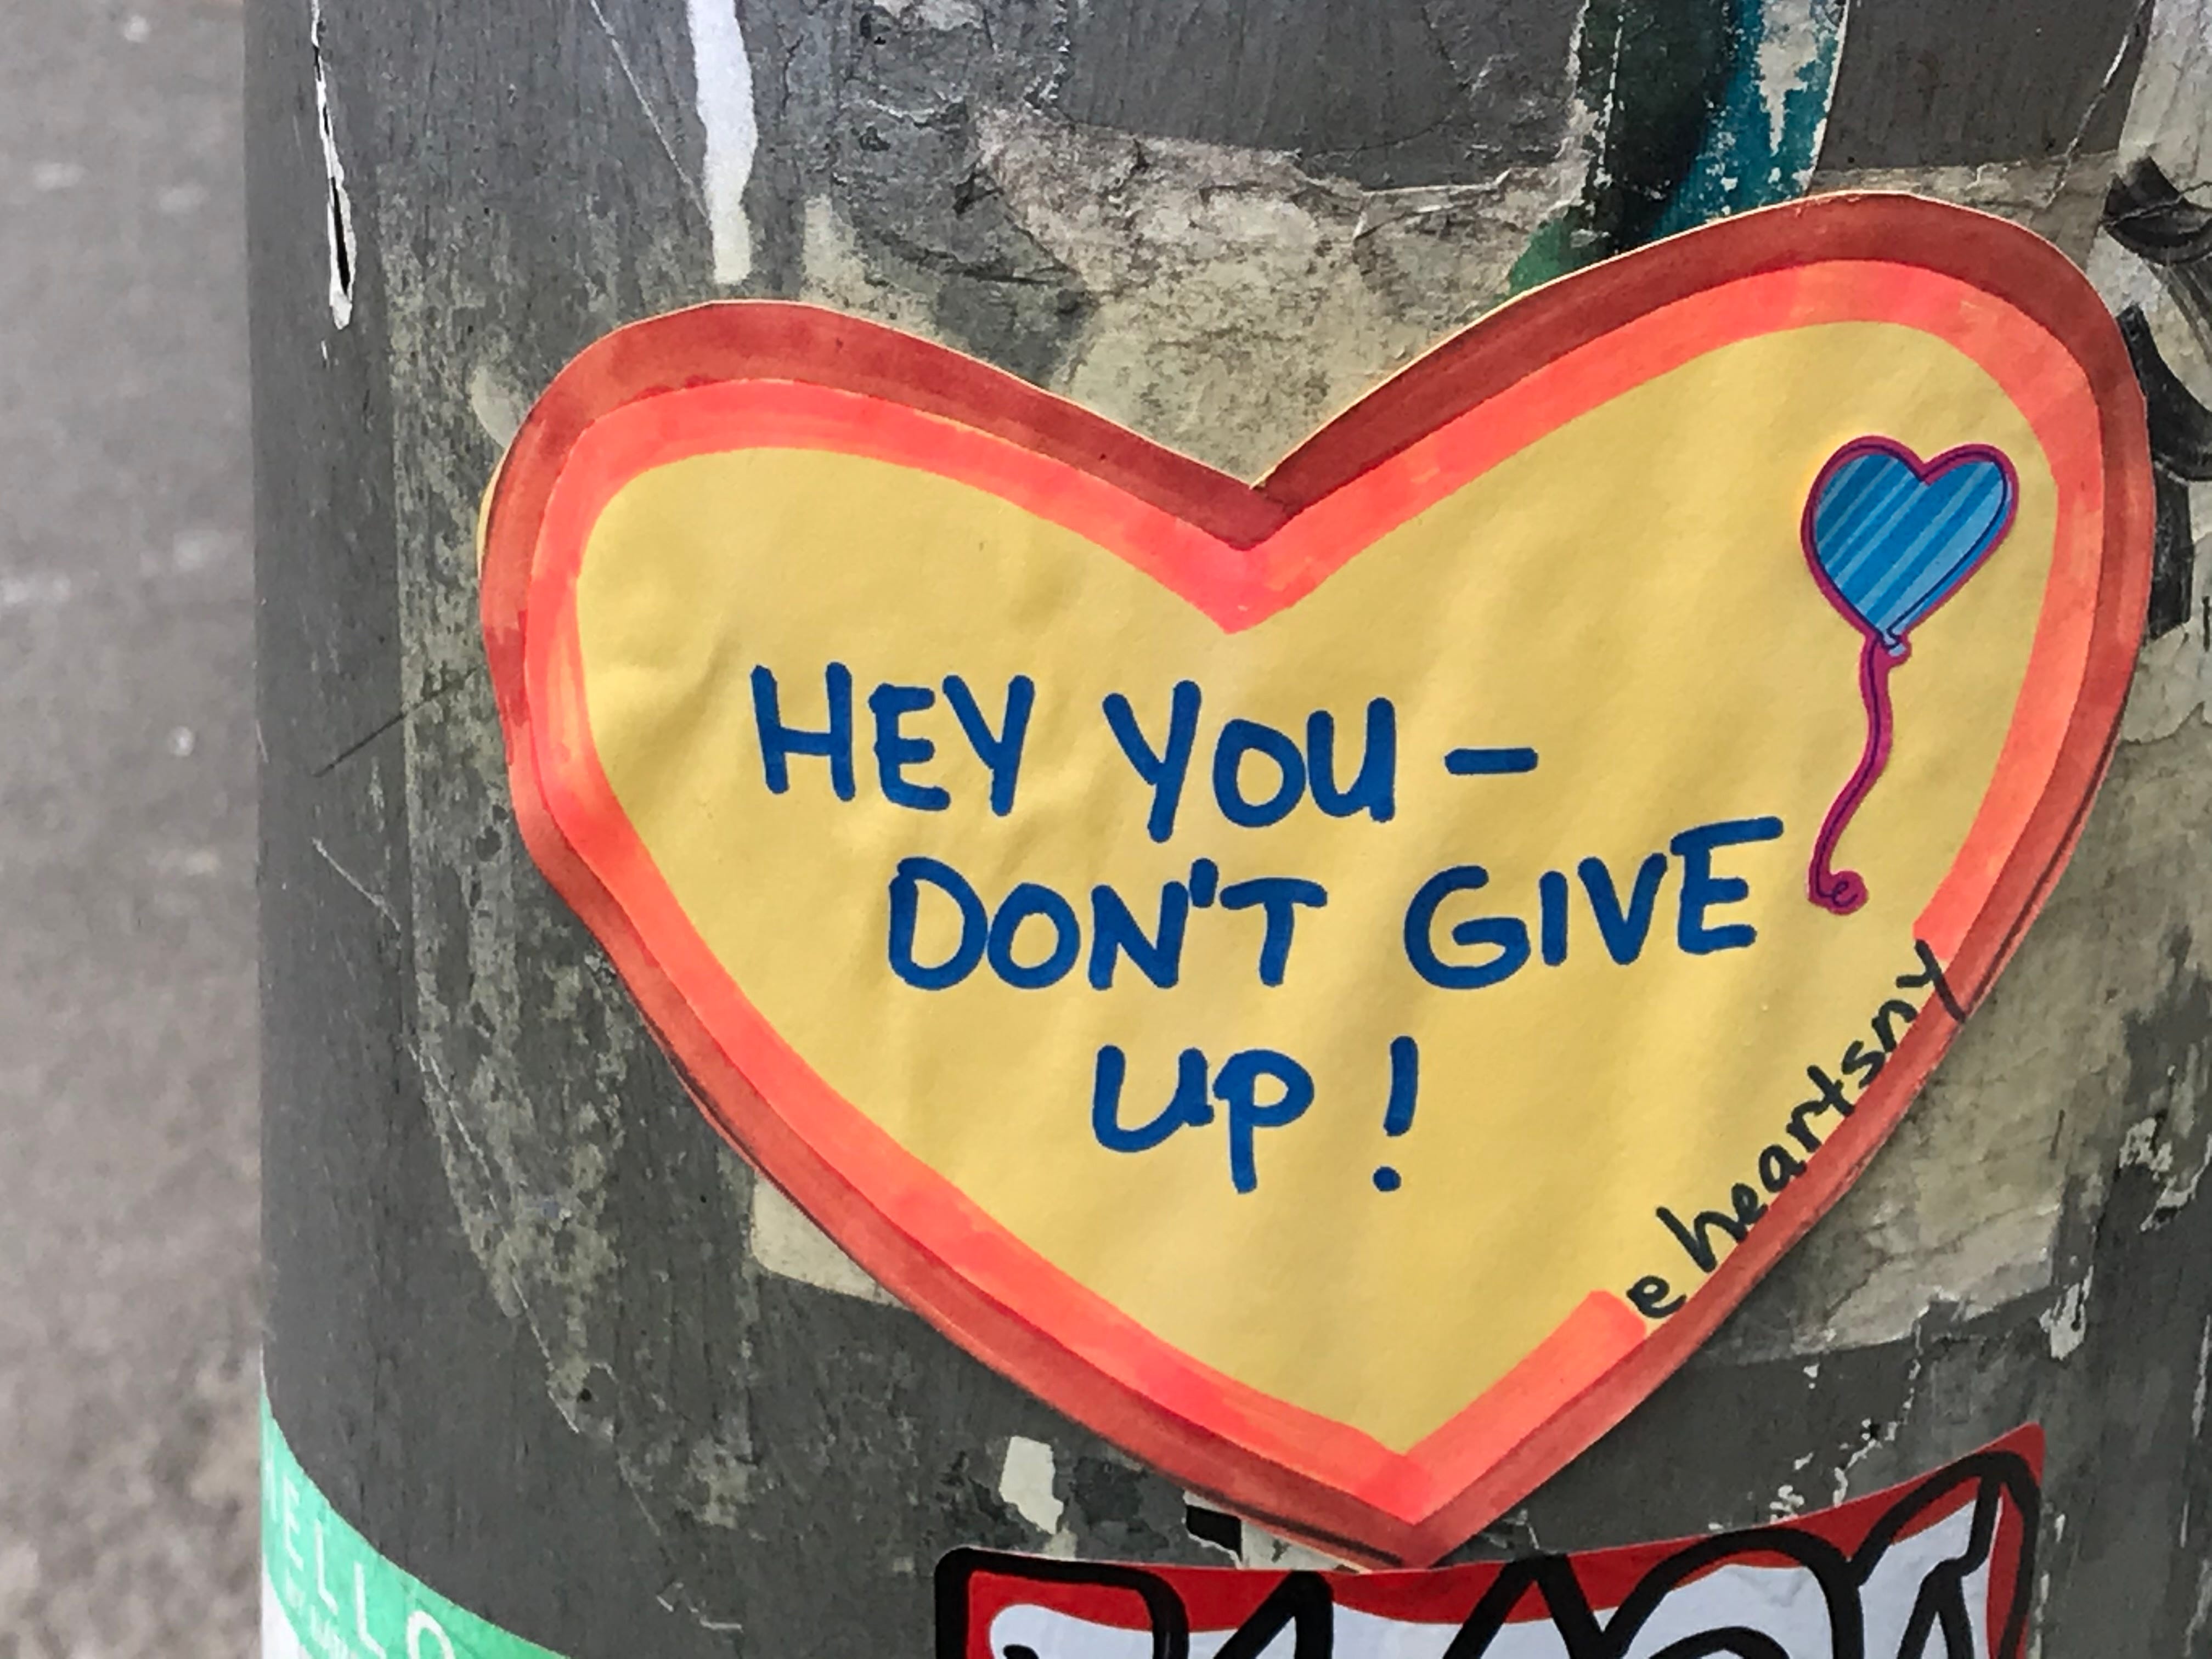 HEY YOU -
DON'T GIVE
UP!
@heartsny
HELLO